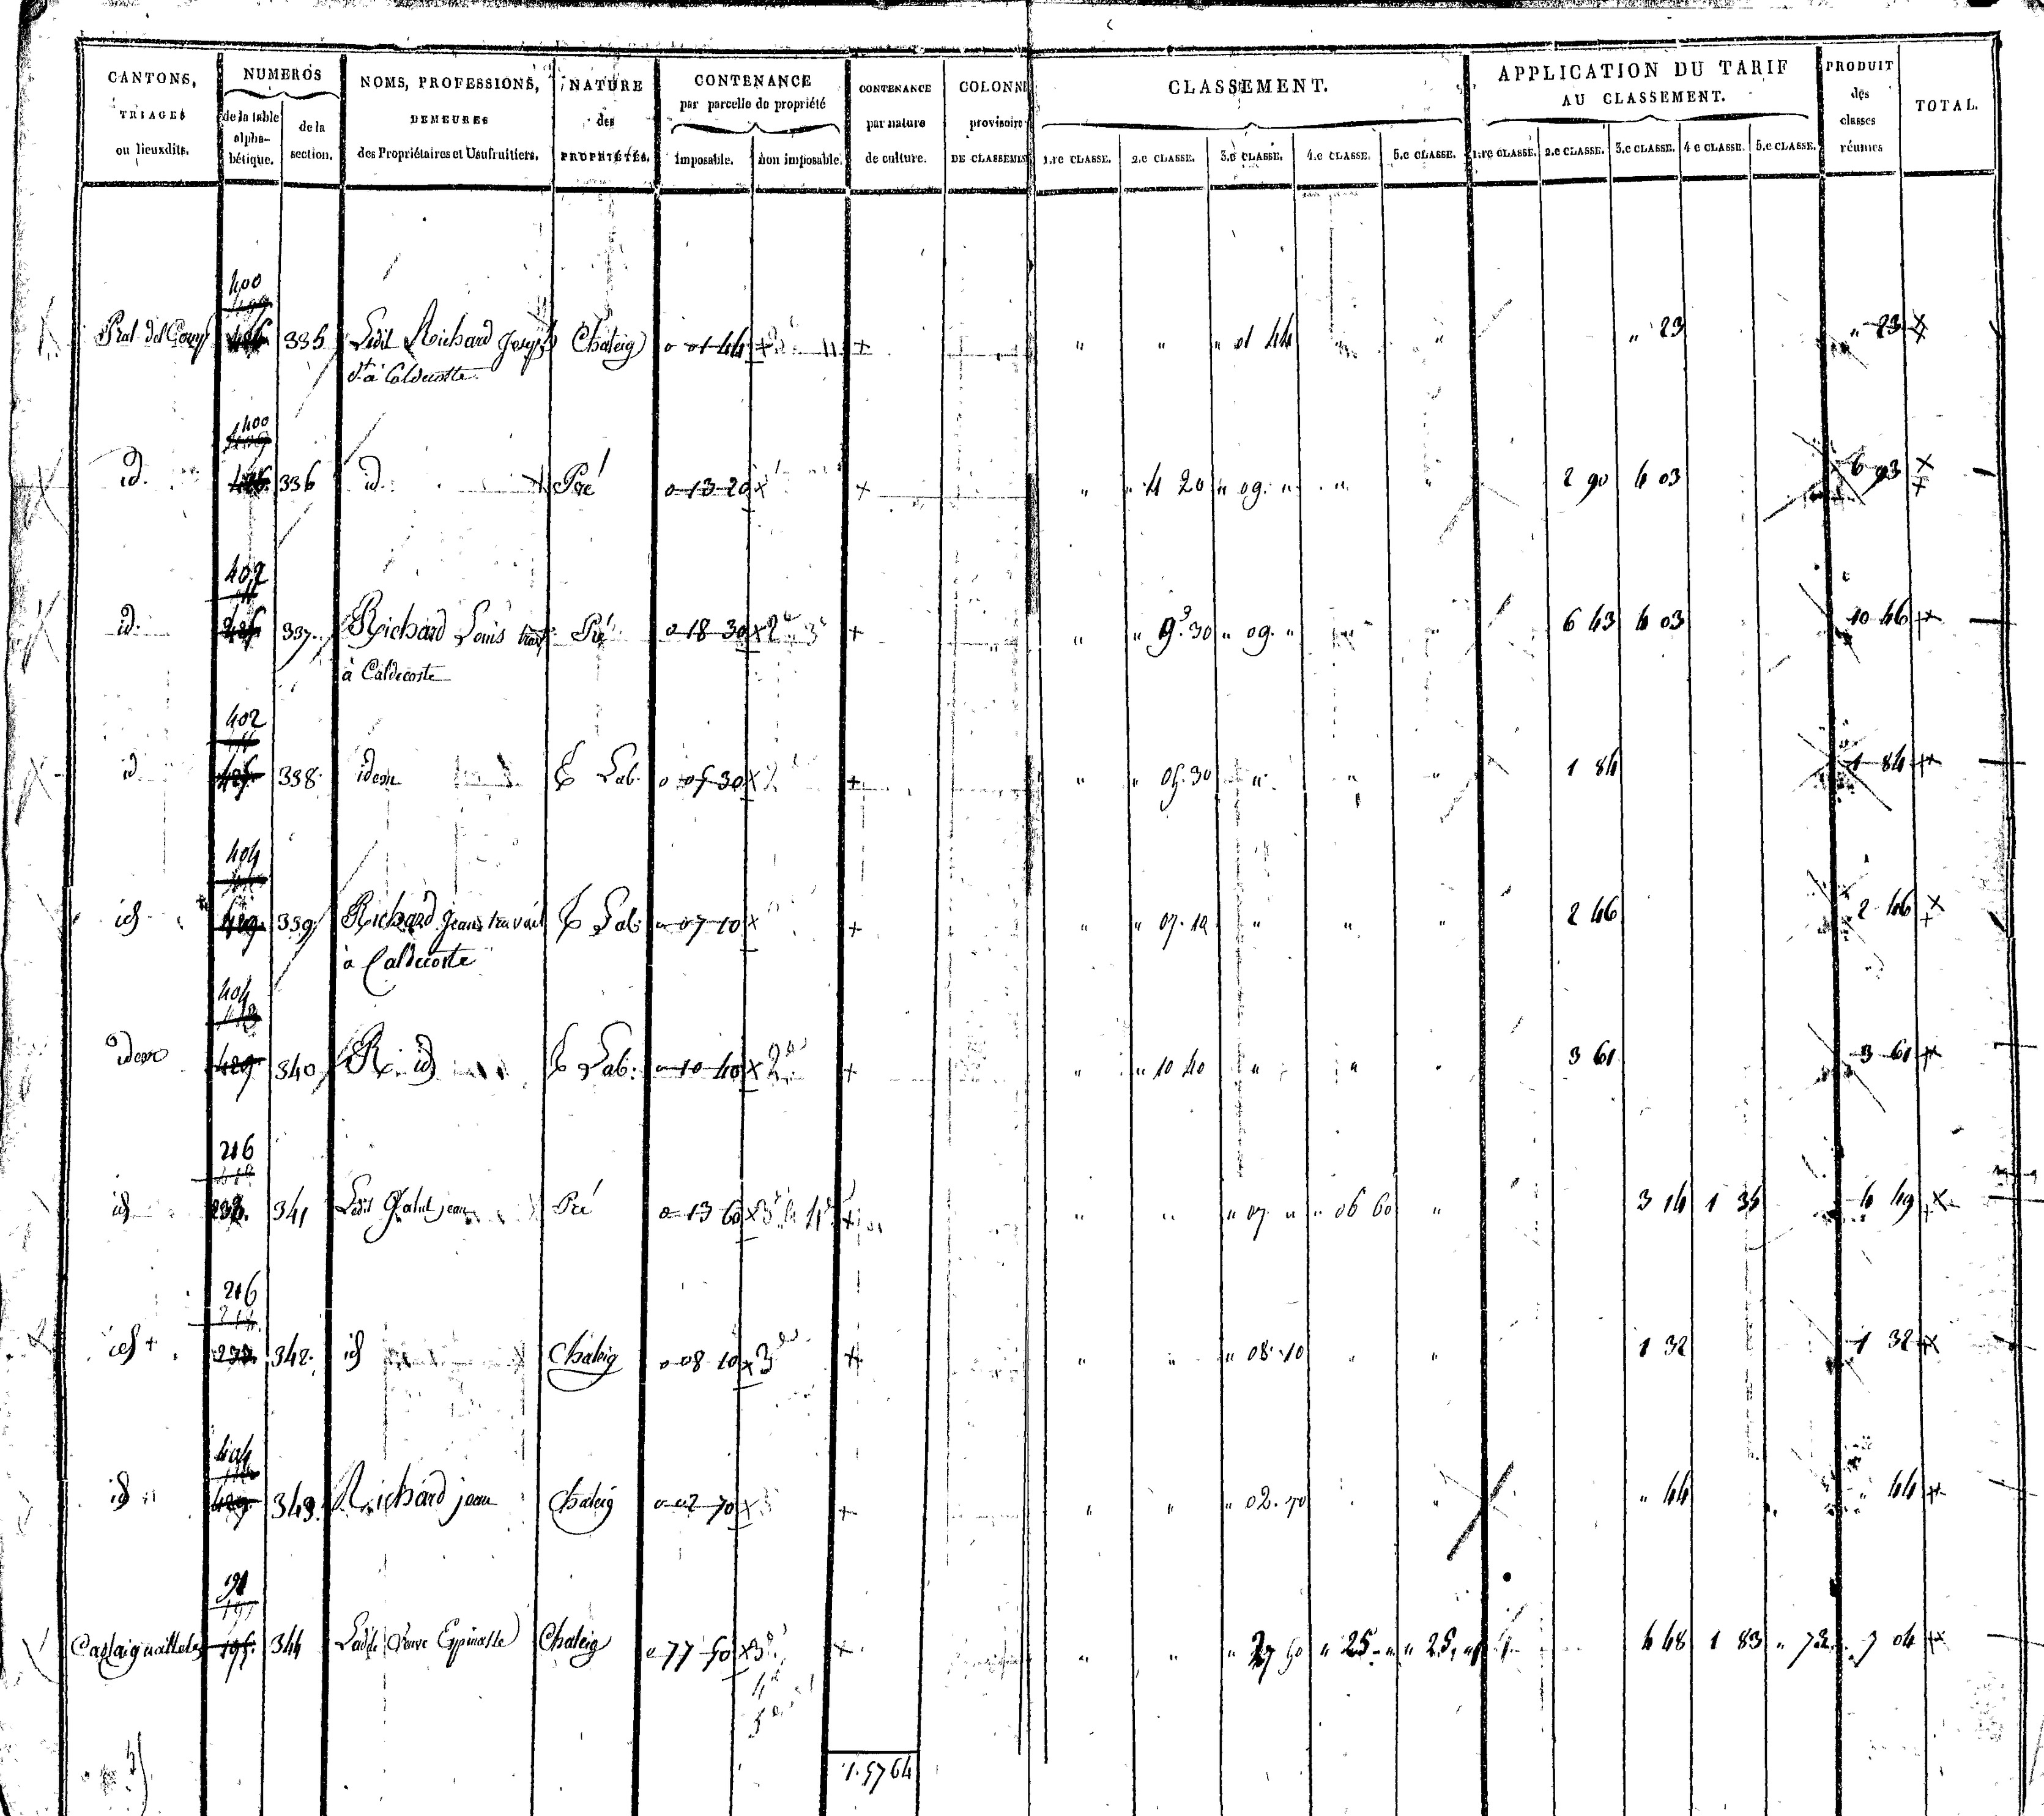 CANTONS, TRIAGES ou lieuxdits. | NUMEROS de la table alphabétique. | de la section. | NOMS, PROFESSIONS, DEMEURES des Propriétaires et Usufruitiers. | NATURE des PROPRIÉTÉS. | CONTENANCE par parcelle de propriété imposable. | non imposable. | CONTENANCE par nature de culture. | COLONNE provisoire DE CLASSEMENT | CLASSEMENT. 1.re CLASSE. | 2.e CLASSE. | 3.e CLASSE. | 4.e CLASSE. | 5.e CLASSE. | APPLICATION DU TARIF AU CLASSEMENT. 1.re CLASSE. | 2.e CLASSE. | 3.e CLASSE. | 4.e CLASSE. | 5.e CLASSE. | PRODUIT des classes réunies | TOTAL.
400
Prat del 335 Ledit Richard Joseph Chataig 0 01 44 + " " " 01 44 " " " 23 " 23
dt à Caldecoste
400
id. 336 id. Pré 0 13 20 x + " " 4 20 " 09 " " 2 90 4 03 6 93
402
id. 337 Richard Louis trav Pré 0 18 30 x 2e 3e + " " 9 30 " 09 " " " 6 43 4 03 10 46
à Caldecoste
402
id 338 idem T Lab. 0 05 30 x 2 + " " 05 30 " " " 1 84 1 84
404
id 429 339 Richard Jean travail T Lab: 0 07 10 x + " " 07 10 " " " 2 46 2 46
à Caldecoste
404
idem 429 340 R. id T Lab: 0 10 40 x 2e + " " 10 40 " " " 3 61 3 61
216
id 341 Ledit Galut jean Pré 0 13 60 x 3e 4e + " " " 07 " " 06 60 " 3 14 1 35 4 49
216
id 342 id Chataig 0 08 10 x 3e + " " " 08 10 " " 1 32 1 32
404
id 429 343 Richard jean Chataig 0 02 70 x + " " " 02 70 " " 44 " 44
191
195 344 Ladite Veuve Espinasse Chataig 0 77 50 x 3e + " " " 27 50 " 25 " " 25 " 4 48 1 83 " 73 7 04
4e
5e
1.5764